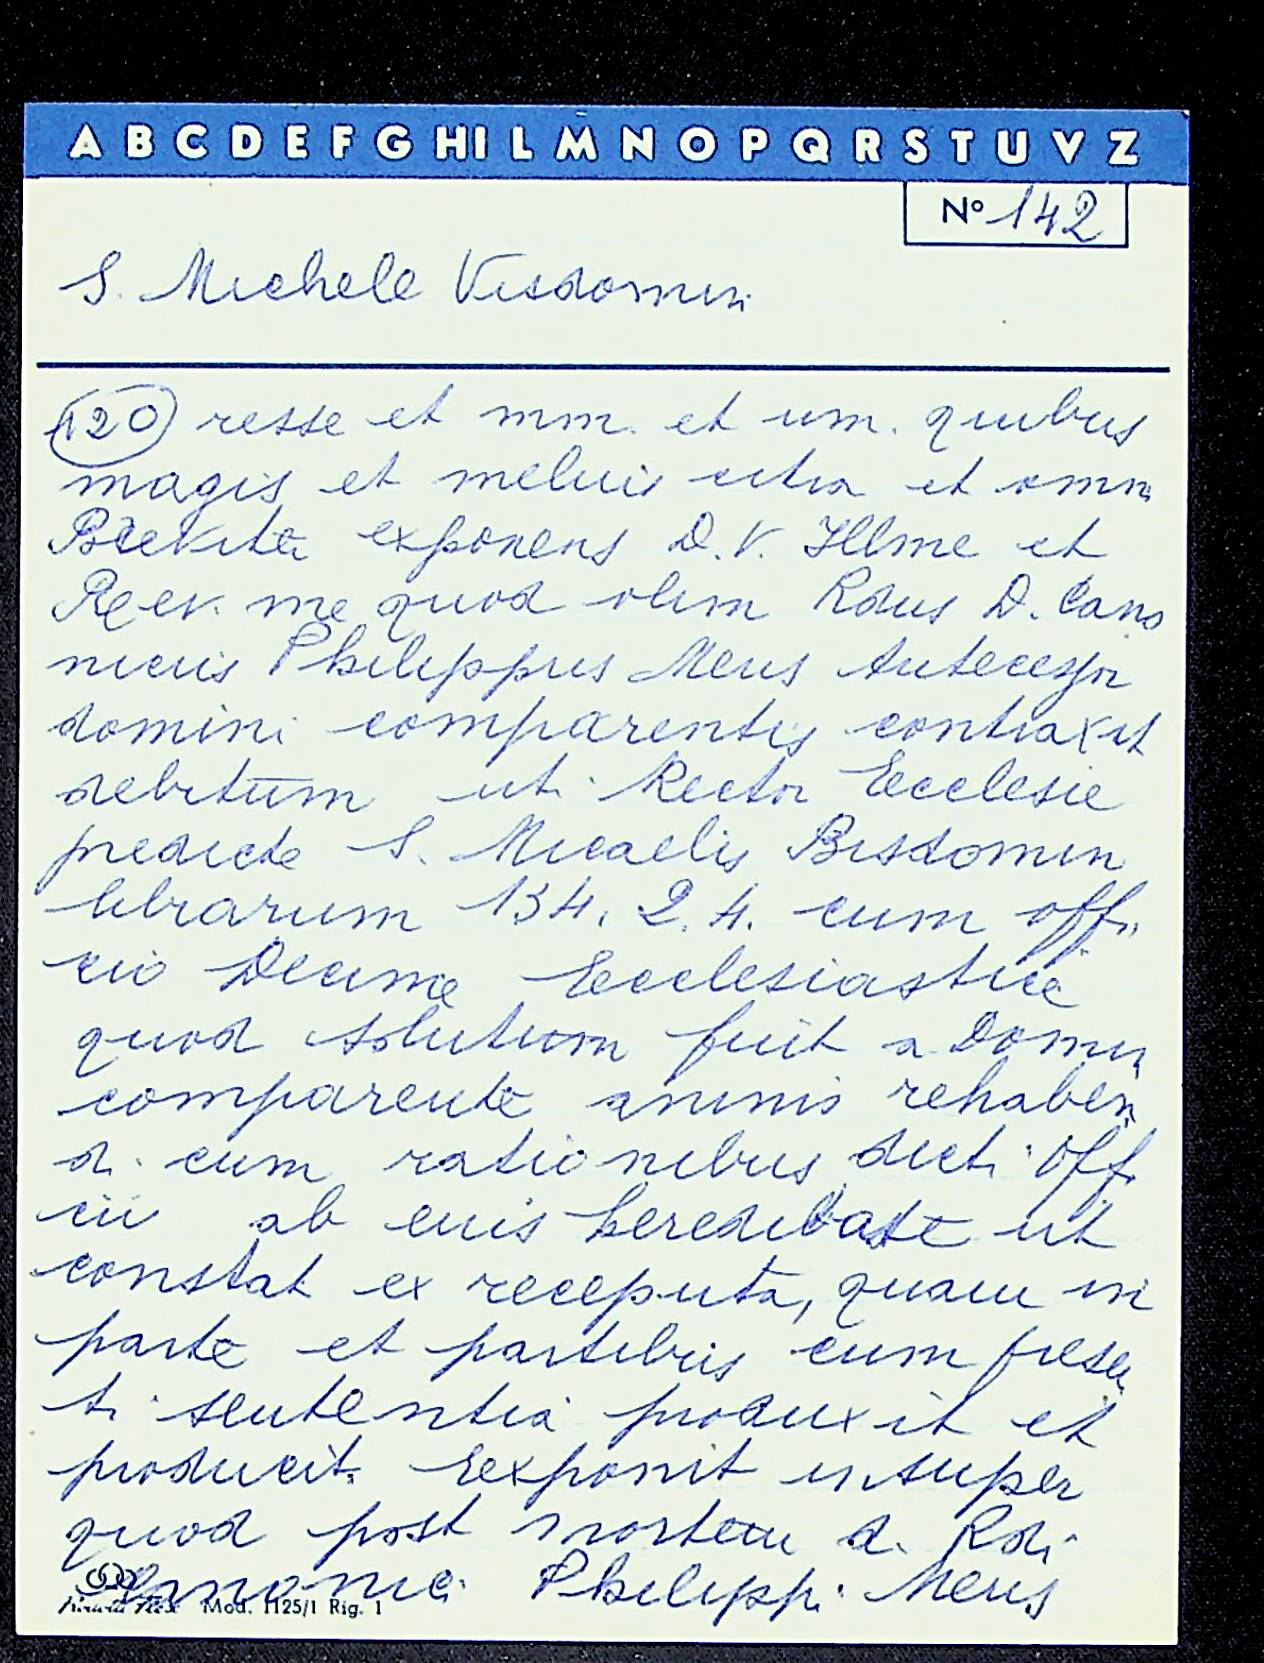 A B C D E F G H I L M N O P Q R S T U V Z
N° 142
S. Michele Visdomin
120 resse et mm. et um. quibus
magis et melius citra et omni
exponens D. V. Illme et
Rev. me quod olim Rdus D. Cano
nicus Philippus Meus Antecessor
domini comparentis contraxit
debitum uti Rector Ecclesie
predicte S. Micaelis Bisdomin
librarum 134. 2. 4. cum offi
cio Decime Ecclesiastice
quod solutum fuit a Domin
comparente animo rehaben
di cum rationibus dicti Offi
cii ab euis hereditate ut
constat ex receputa, quam in
parte et partibus cum presen
ti sententia produxit et
producit. Exponit insuper
quod post mortem d. Rdi
Canonici Philippi Meus
Mod. 1125/1 Rig. 1